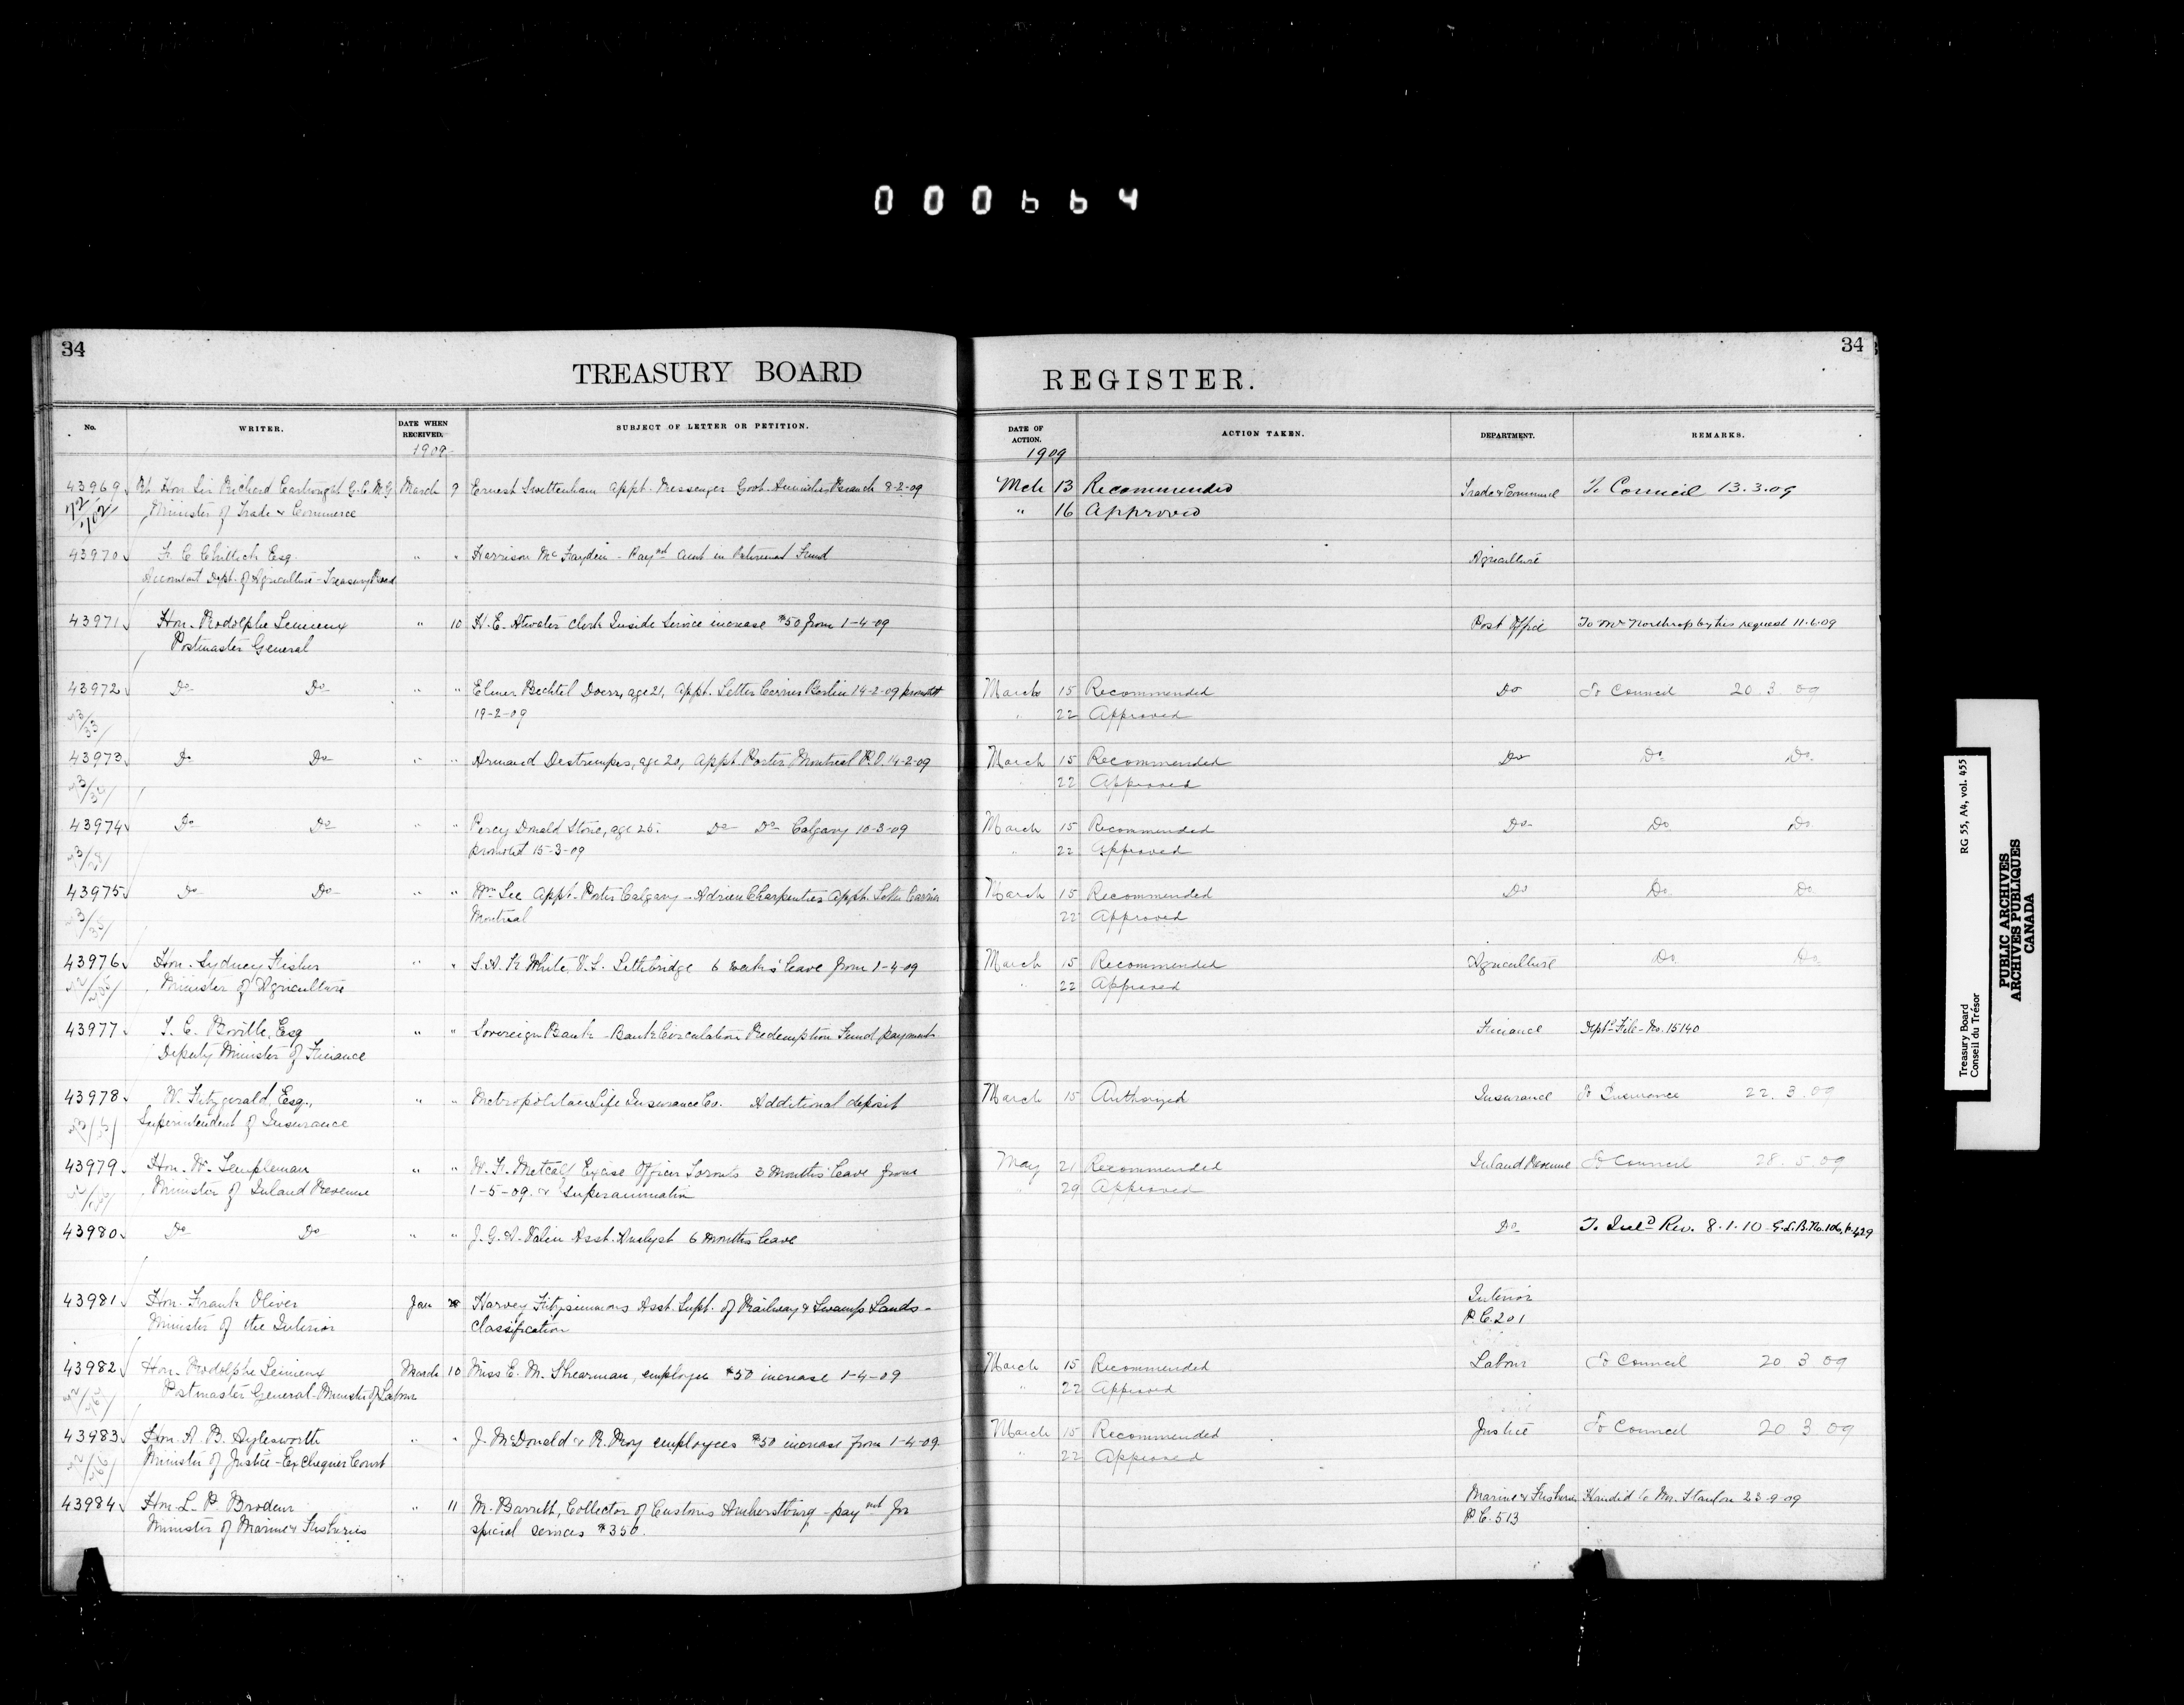 000664
34
TREASURY BOARD
REGISTER.
34
No. WRITER. DATE WHEN RECEIVED. SUBJECT OF LETTER OR PETITION. DATE OF ACTION. ACTION TAKEN. DEPARTMENT. REMARKS.
1909 1909
43969 Rt. Hon Sir Richard Cartwright G.C.M.G. March 9 Ernest Swettenham Appt. Messenger Branch 8-2-09 Mch 13 Recommended Trade & Commerce To Council 13.3.09
Minister of Trade & Commerce " 16 Approved
43970 F. C. Chittick Esq. " " Harrison Mc Fayden - Paynt in Retirement Fund Agriculture
Accountant Dept. of Agriculture - Treasury Board
43971 Hon. Rodolphe Lemieux " 10 H. E. Atwater Clerk Inside Service increase $50 from 1-4-09 Post Office To Mr Northrop by his request 11.6.09
Postmaster General
43972 Do Do " " Elmer Bechtel Doerr, age 21, Appt. Letter Carrier Berlin 14-2-09 March 15 Recommended Do To Council 20 3 09
19-2-09 " 22 Approved
43973 Do Do " " Armand Destrempes, age 20, Appt. Porter Montreal P.O. 14-2-09 March 15 Recommended Do Do Do
22 Approved
43974 Do Do " " Percy Donald Stone, age 25. Do Do Calgary 10-3-09 March 15 Recommended Do Do Do
15-3-09 " 22 Approved
43975 Do Do " " Wm Lee Appt. Porter Calgary - Adrien Charpentier Appt. Letter Carrier March 15 Recommended Do Do Do
Montreal 22 Approved
43976 Hon. Sydney Fisher " " White, V.S. Lethbridge 6 weeks' leave from 1-4-09 March 15 Recommended Agriculture Do Do
Minister of Agriculture " 22 Approved
43977 T. C. Boville, Esq " " Sovereign Bank - Bank Circulation Redemption Fund payment Finance Deptl File - No. 15140
Deputy Minister of Finance
43978 W. Fitzgerald, Esq., " " Metropolitan Life Insurance Co. Additional deposit March 15 Authorized Insurance To Insurance 22. 3. 09
Superintendent of Insurance
43979 Hon. W. Templeman " " W. F. Metcalf Excise Officer Toronto 3 months' leave from May 21 Recommended Inland Revenue To Council 28. 5. 09
Minister of Inland Revenue 1-5-09. & Superannuation 29 Approved
43980 Do Do " " J. G. A. Valin Asst. Analyst 6 months leave Do To Inld Rev. 8.1.10 G.L.B. No. 106, p. 429
43981 Hon. Frank Oliver Jan Harvey Fitzsimmons Asst. Supt. of Railway & Swamp Lands - Interior
Minister of the Interior Classification P.C. 201
43982 Hon. Rodolphe Lemieux March 10 Miss E. M. Shearman, employee $50 increase 1-4-09 March 15 Recommended Labour To Council 20 3 09
Postmaster General - Minister of Labour " 22 Approved
43983 Hon. A. B. Aylesworth " " J. McDonald & R. Roy employees $50 increase from 1-4-09 March 15 Recommended Justice To Council 20 3 09
Minister of Justice - Exchequer Court " 22 Approved
43984 Hon. L. P. Brodeur " 11 M. Barrett, Collector of Customs Amherstburg - paynt for Marine & Fisheries Handed to Mr. 23-9-09
Minister of Marine & Fisheries special services $350. P.C. 513
Treasury Board RG 55, A4, vol. 455
Conseil du Trésor
PUBLIC ARCHIVES
ARCHIVES PUBLIQUES
CANADA